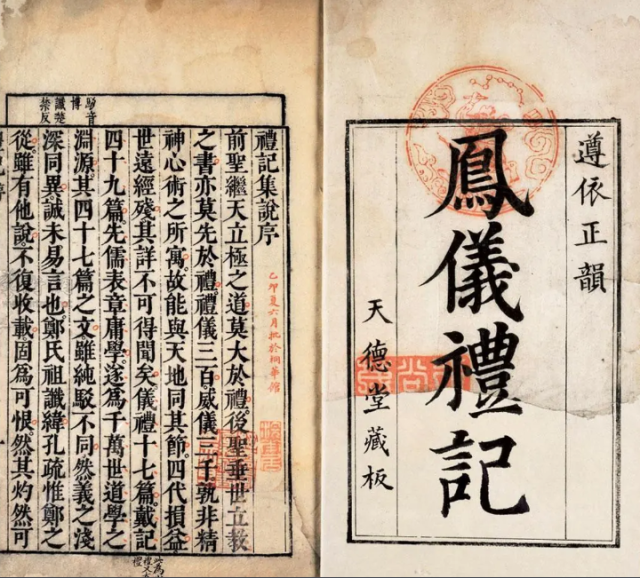 遵依正韻
鳳儀禮記
天德堂藏板
禮記集說序
前聖繼天立極之道莫大於禮後聖垂世立教
之書亦莫先於禮禮儀三百威儀三千孰非精
神心術之所寓故能與天地同其節四代損益
世遠經殘其詳不可得聞矣儀禮十七篇戴記
四十九篇先儒表章庸學遂為千萬世道學之
淵源其四十七篇之文雖純駁不同然義之淺
深同異誠未易言也鄭氏祖讖緯孔疏惟鄭之
從雖有他說不復收載固為可恨然其灼然可
駁音
博
讖楚
禁反